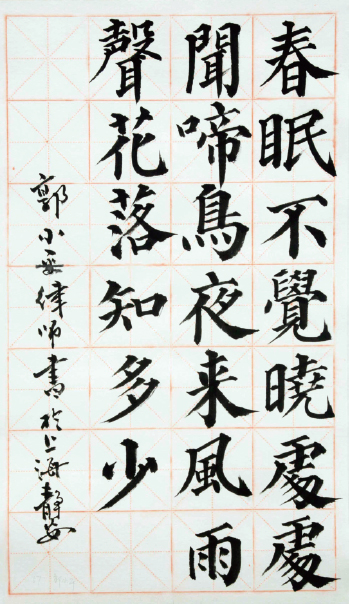 春眠不覺曉處處
聞啼鳥夜来風雨
聲花落知多少
郭小安律师書於上海靜安